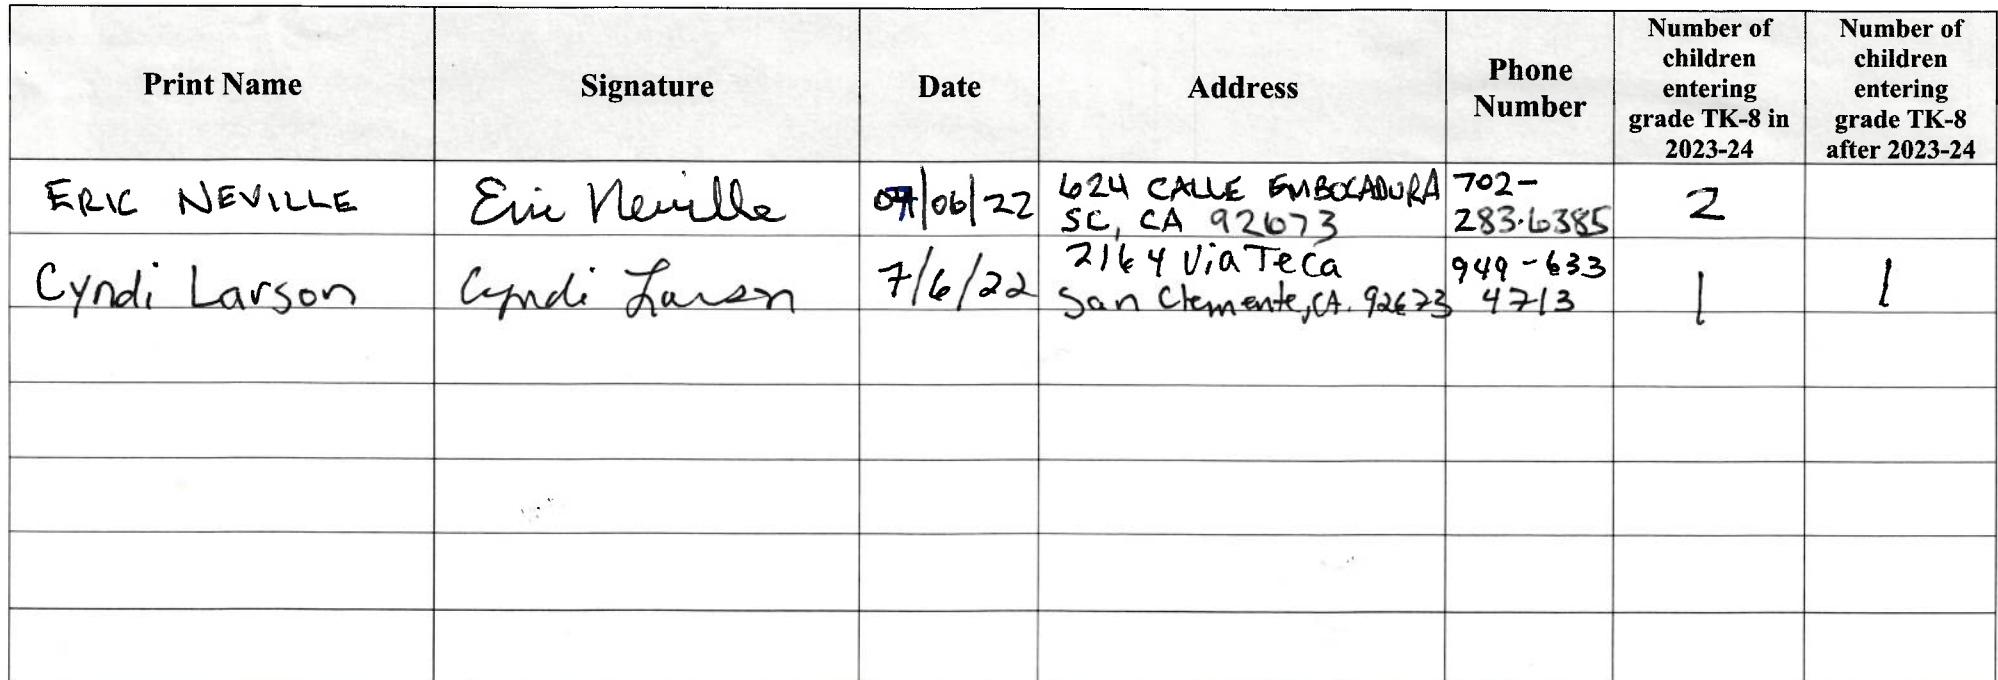 Print Name
Signature
Date
Address
Phone
Number
Number of
children
entering
grade TK-8 in
2023-24
Number of
children
entering
grade TK-8
after 2023-24
ERIC NEVILLE
Eric Neville
07/06/22
624 CALLE EMBOCADURA
SC, CA 92673
702-
283.6385
2
Cyndi Larson
Cyndi Larson
7/6/22
2164 Via Teca
San Clemente, CA. 92673
949-633
4713
1
1